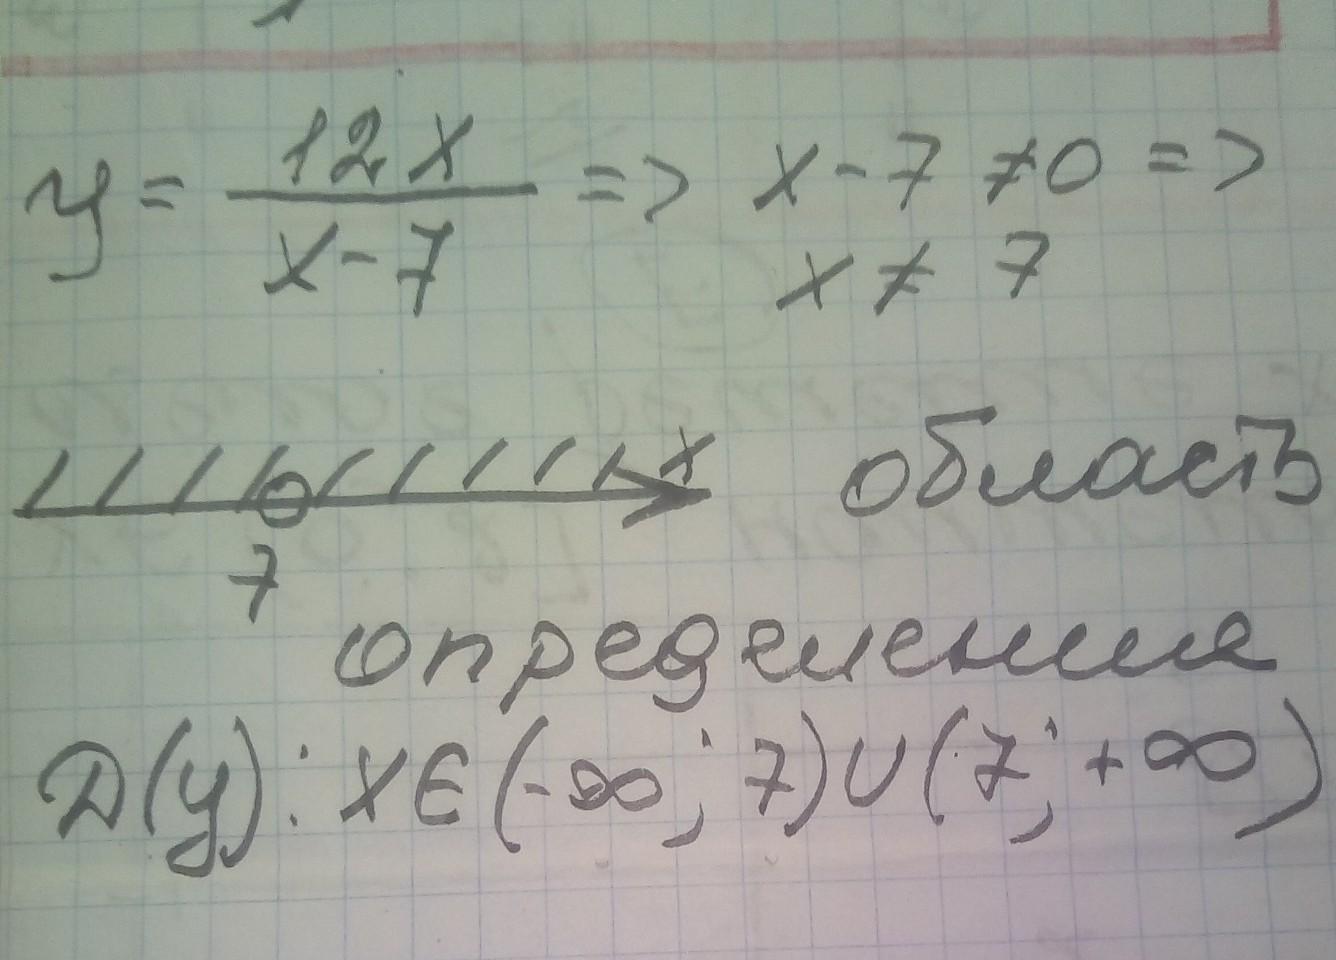 y = 12x / x - 7 => x - 7 ≠ 0 =>
x ≠ 7
x область
7
определения
D(y): x ∈ (-∞; 7) ∪ (7; +∞)